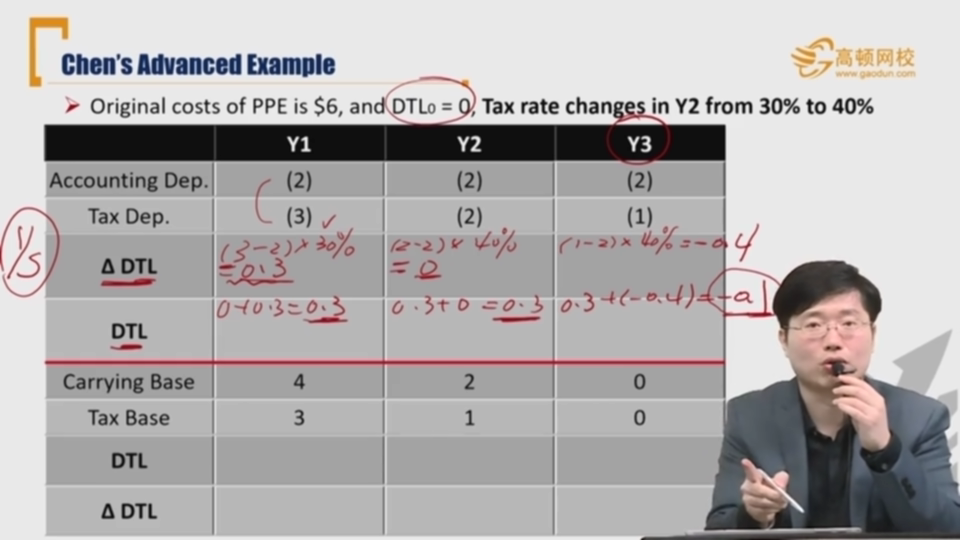 Chen's Advanced Example
高顿网校
www.gaodun.com
➤ Original costs of PPE is $6, and DTL₀ = 0, Tax rate changes in Y2 from 30% to 40%
Y1 Y2 Y3
Accounting Dep. (2) (2) (2)
Tax Dep. (3) (2) (1)
I/S
Δ DTL (3-2)×30% =0.3 (2-2)×40% =0 (1-2)×40%=-0.4
DTL 0+0.3=0.3 0.3+0=0.3 0.3+(-0.4)=-0.1
Carrying Base 4 2 0
Tax Base 3 1 0
DTL
Δ DTL